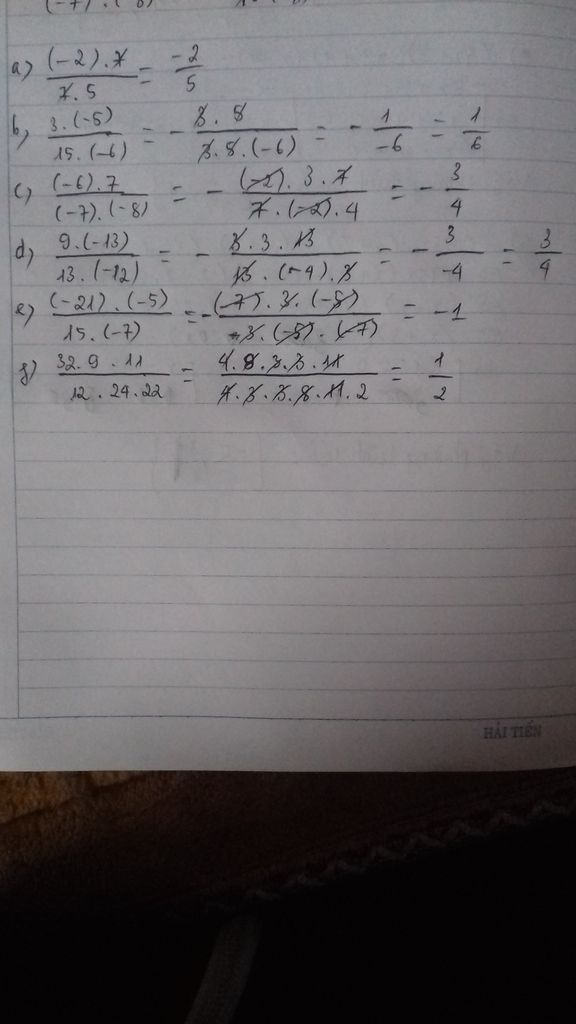 a) (-2).7 / 7.5 = -2/5
b) 3.(-5) / 15.(-6) = - 3.5 / 3.5.(-6) = - 1/-6 = 1/6
c) (-6).7 / (-7).(-8) = - (-2).3.7 / 7.(-2).4 = - 3/4
d) 9.(-13) / 13.(-12) = - 3.3.13 / 13.(-4).3 = - 3/-4 = 3/4
e) (-21).(-5) / 15.(-7) = - (-7).3.(-5) / 3.(-5).(-7) = -1
f) 32.9.11 / 12.24.22 = 4.8.3.3.11 / 4.3.3.8.11.2 = 1/2
HẢI TIẾN